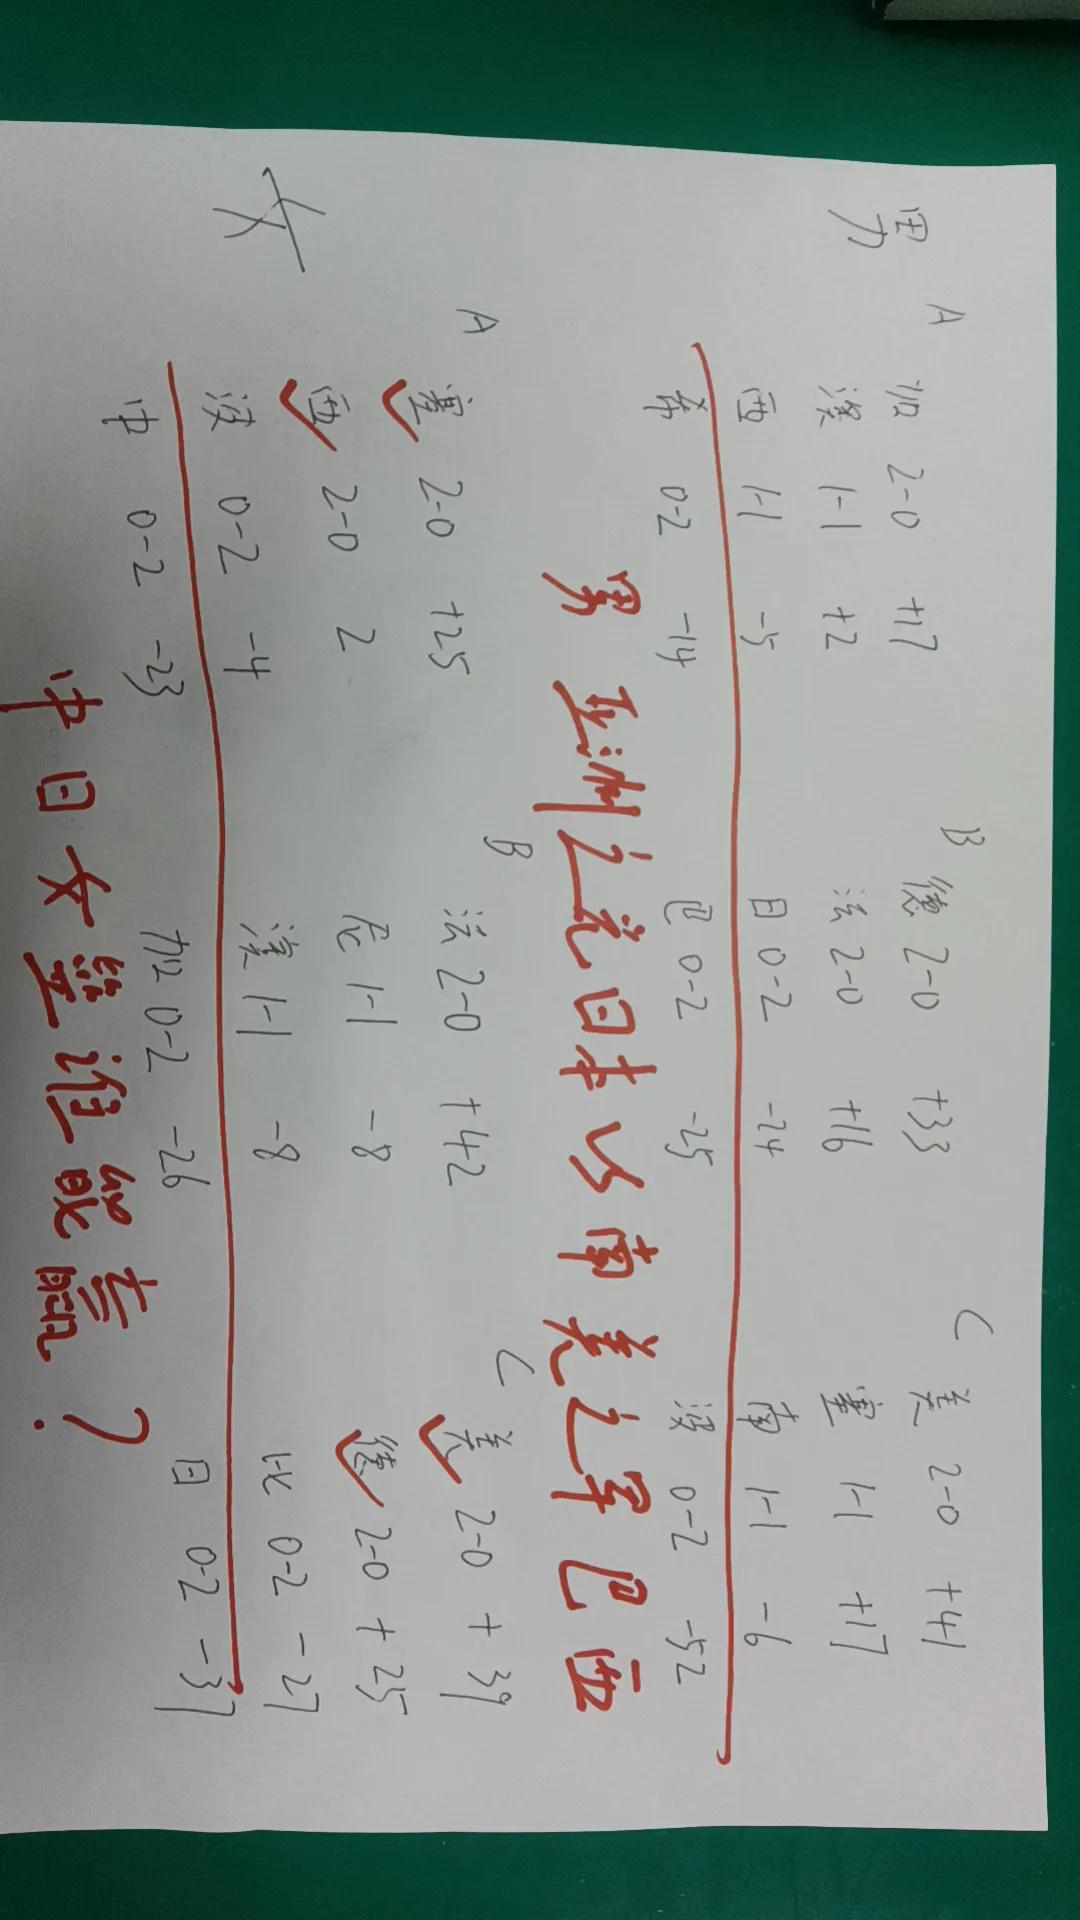 男
A B C
加 2-0 +17 德 2-0 +33 美 2-0 +41
澳 1-1 +2 法 2-0 +16 塞 1-1 +17
西 1-1 -5 日 0-2 -24 南 1-1 -6
希 0-2 -14 巴 0-2 -25 0-2 -52
男 亚洲之光日本 VS 南美之军巴西
女
A B C
塞 2-0 +25 法 2-0 +42 美 2-0 +39
西 2-0 2 尼 1-1 -8 德 2-0 +25
波 0-2 -4 澳 1-1 -8 比 0-2 -27
中 0-2 -23 加 0-2 -26 日 0-2 -37
中日女篮谁能赢?